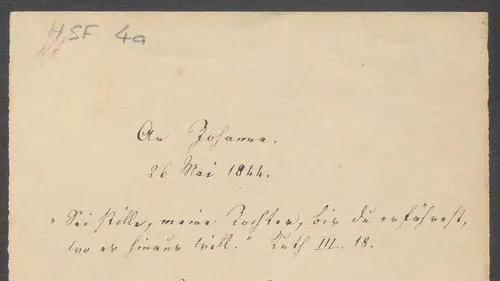 HSF 4a
An Johanna.
26 Mai 1844.
„Sei stille, meine Tochter, bis du erfährest,
wo es hinaus will." Ruth III. 18.